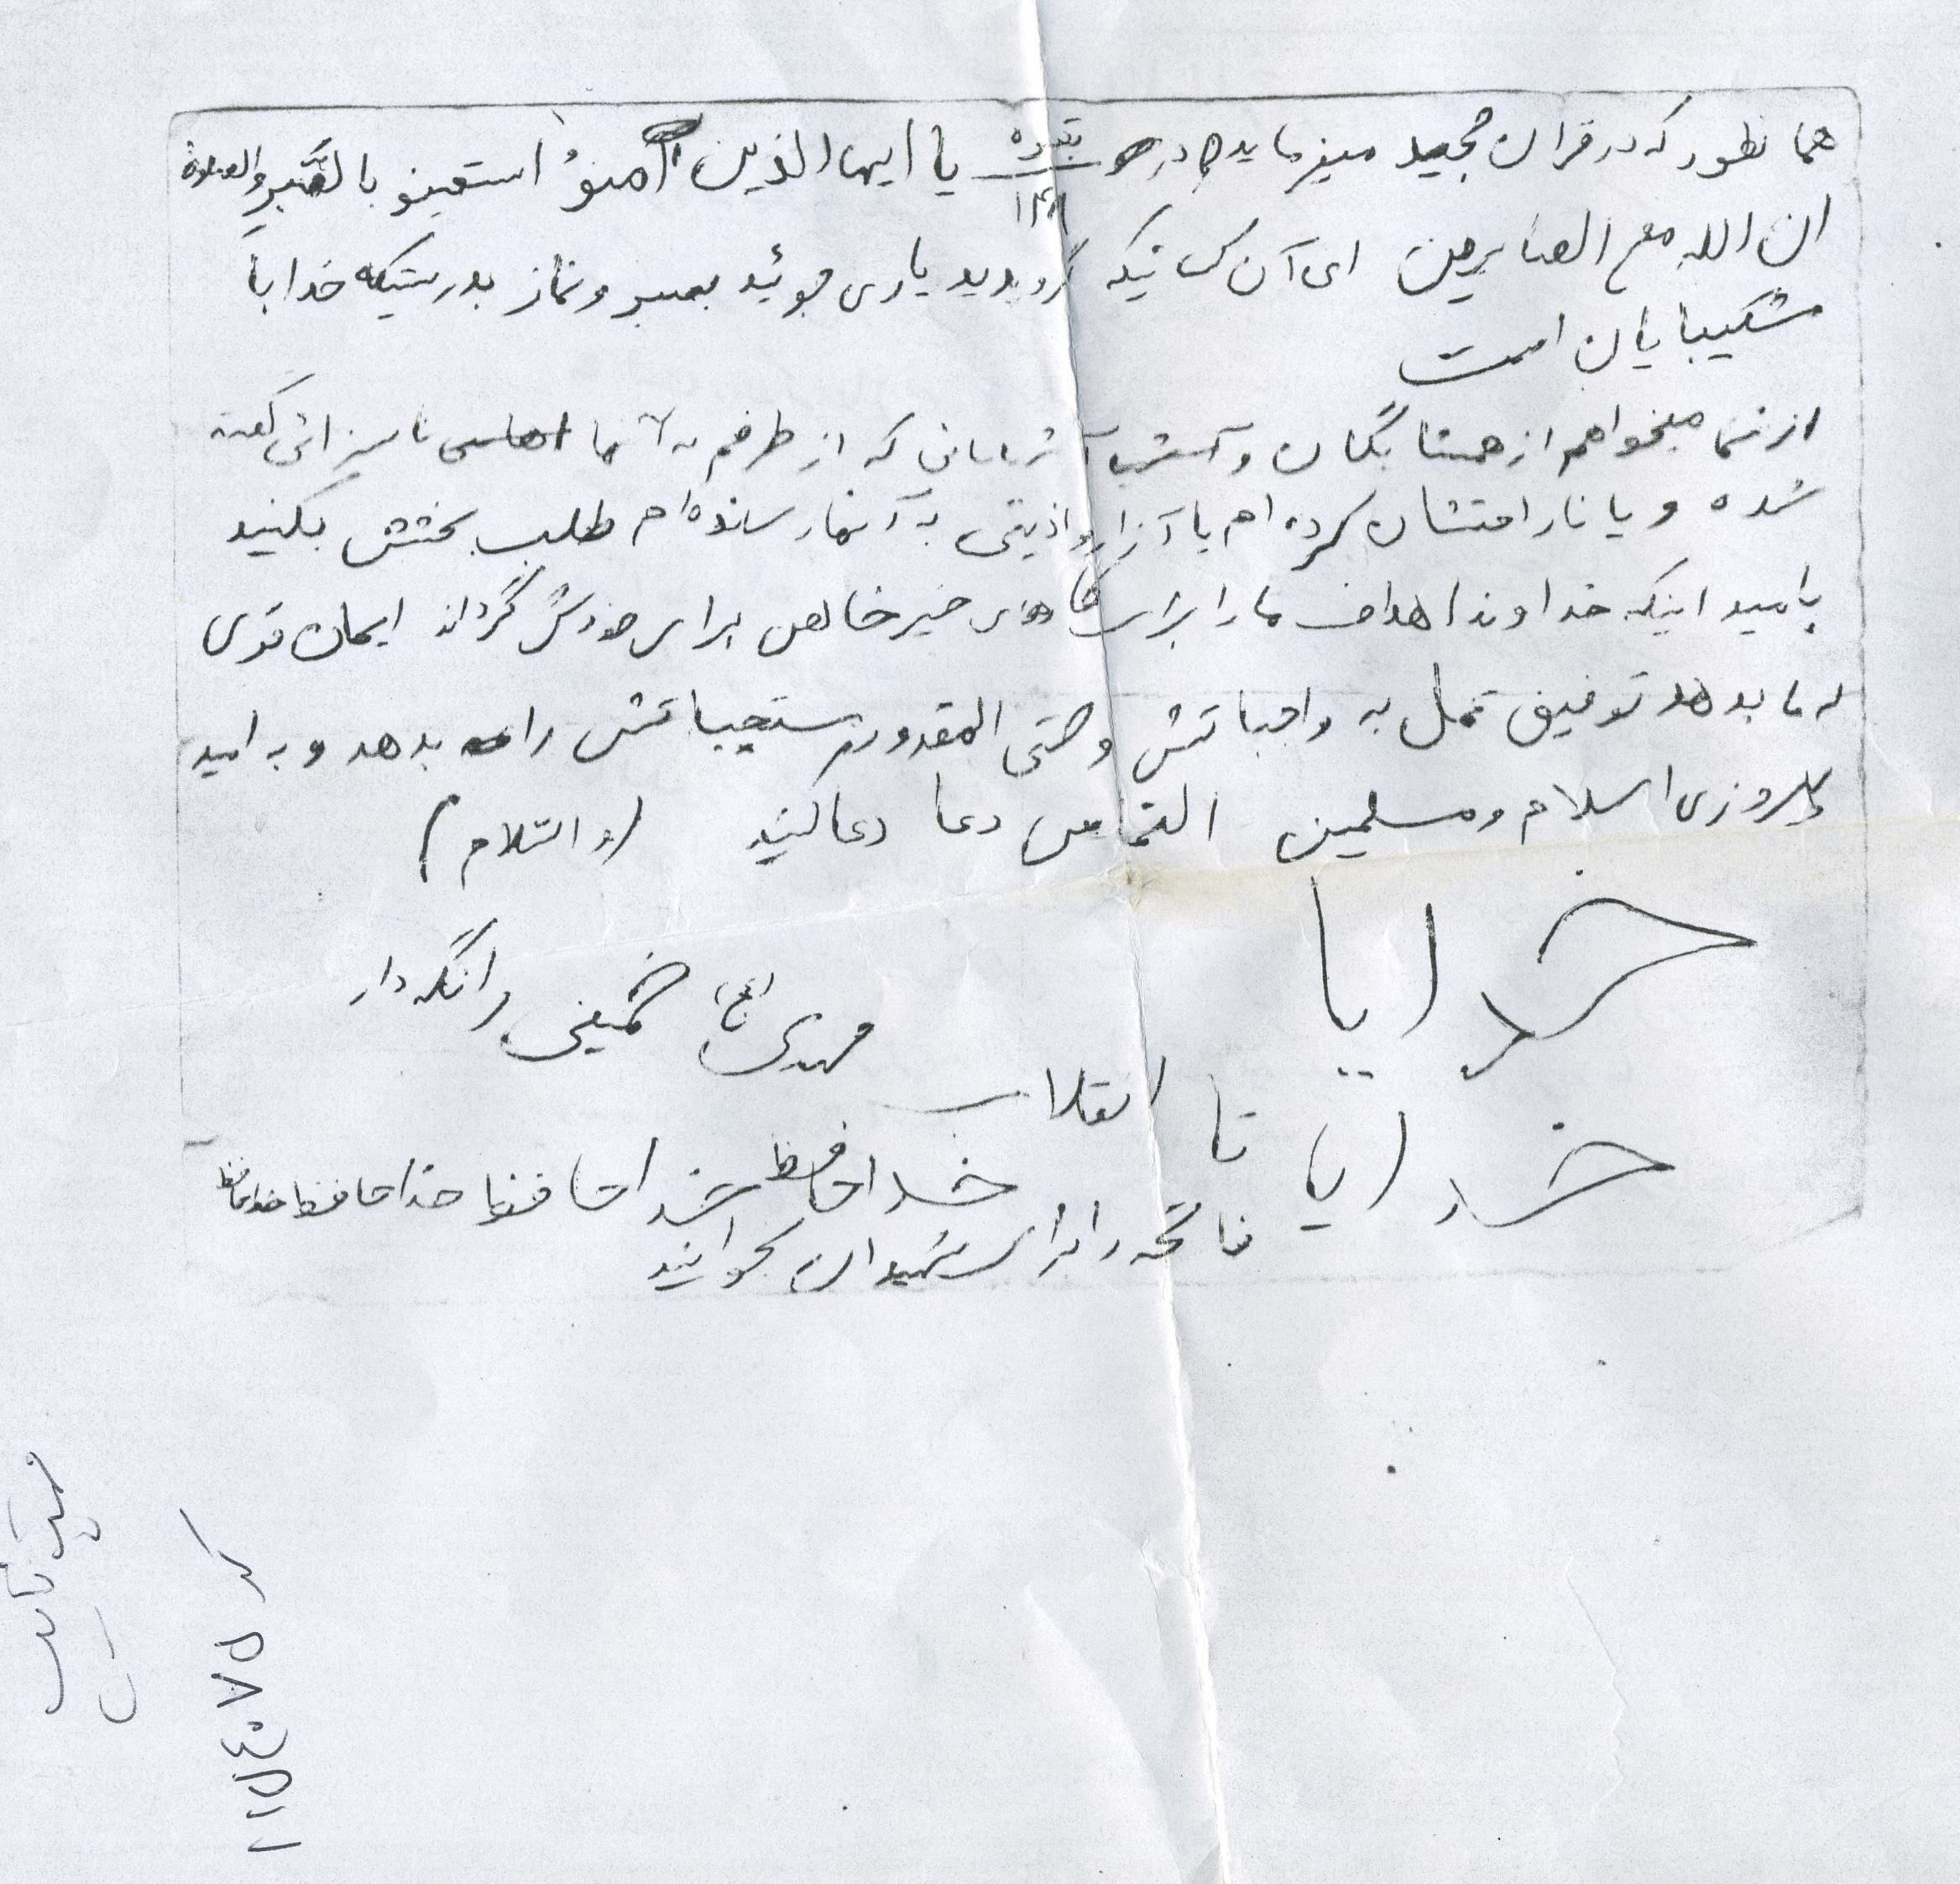 همانطور که در قران مجید میفرماید در بقره ۱۴۸ یا ایها الذین آمنوُ استعینو بالصَّبرِ والصلوة
ان الله مع الصابرین ای آن کسانیکه گرویدید یاری جوئید بصبر و نماز بدرستیکه خدا با
شکیبایان است
از شما میخواهم از همسایگان و که از طرفم به آنها ناسزائی گفته
شده و یا ناراحتشان کرده ام یا آزار و اذیتی به آنها رسانده ام طلب بخشش بکنید
بامید اینکه خداوند اهداف ما را برای کارهای خیر خالص برای خودش گرداند ایمان قوی
به ما بدهد توفیق عمل به واجباتش و حتی المقدور مستحباتش را بدهد و به امید
پیروزی اسلام و مسلمین التماس دعا دعا کنید (والسلام)
خدایا
خدایا تا انقلاب مهدی (عج) خمینی را نگهدار
خداحافظ خداحافظ خداحافظ خداحافظ
فاتحه را برای شهیدان بخوانید
کد ۱۱۵۴۰۷۵